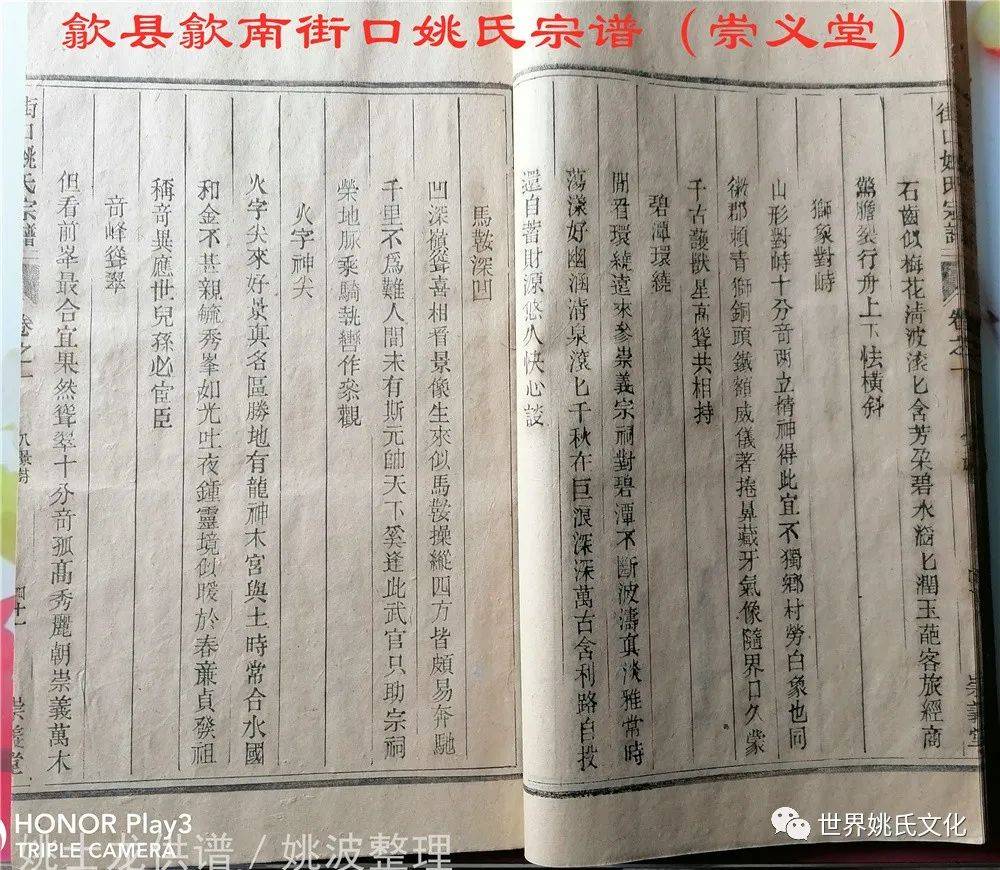 歙县歙南街口姚氏宗谱（崇义堂）
石齒似梅花清波滾匕含芳朶碧水滔匕潤玉葩客旅經商
驚膽裂行舟上下怯橫斜
獅象對峙
山形對峙十分竒两立情神得此宜不獨鄉村勞白象也同
徽郡賴青獅銅頭鐵額威儀著捲鼻藏牙氣像隨界口久蒙
千古護獸星高聳共相持
碧潭環繞
開看環繞遠來參崇義宗祠對碧潭不斷波濤真淡雅常時
蕩漾好幽涵清泉滾匕千秋在巨浪深深萬古含利路自投
還自蓄財源悠久快心談
馬鞍深凹
凹深嶺聳喜相看景像生來似馬鞍操縱四方皆頗易奔馳
千里不爲難人間未有斯元帥天下奚逢此武官只助宗祠
榮地脈乘騎執轡作參觀
火字神尖
火字尖來好景真名區勝地有龍神木宮與土時常合水國
和金不甚親毓秀峯如光吐夜鍾靈境似暖於春亷貞發祖
稱竒異應世兒孫必宦臣
竒峰聳翠
但看前峯最合宜果然聳翠十分竒孤髙秀麗朝崇義萬木
街口姚氏宗譜
卷之一
八景詩
四十一
崇義堂
HONOR Play3
TRIPLE CAMERA
姚土龙供谱 / 姚波整理
世界姚氏文化